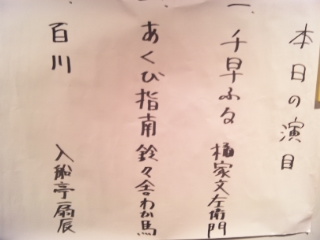 本日の演目
一、千早ふる 橘家文左衛門
一、あくび指南 鈴々舎わか馬
一、百川 入船亭扇辰